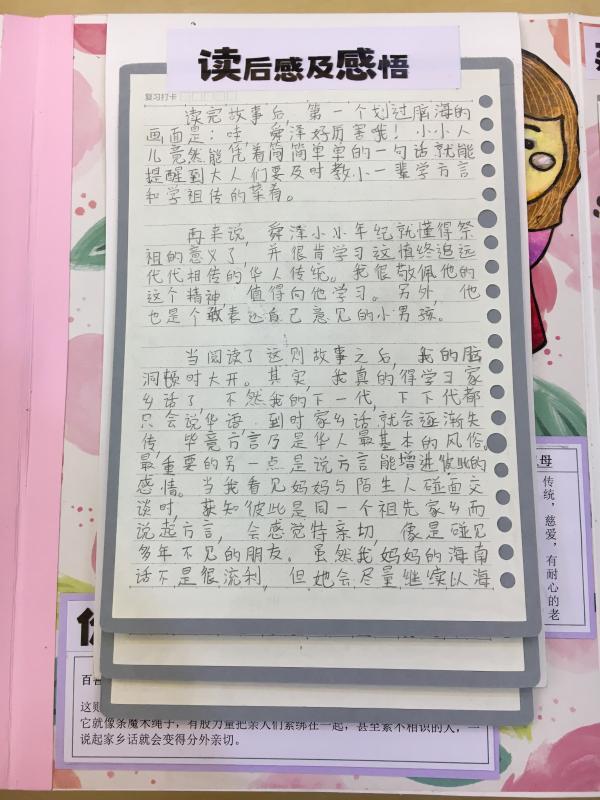 读后感及感悟
复习打卡
读完故事后，第一个划过脑海的
画面是：哇，舜泽好厉害哦！小小人
儿竟然能凭着简简单单的一句话就能
提醒到大人们要及时教小一辈学方言
和学祖传的菜肴。
再来说，舜泽小小年纪就懂得祭
祖的意义了，并很肯学习这慎终追远
代代相传的华人传统。我很敬佩他的
这个精神，值得向他学习。另外，他
也是个敢表达自己意见的小男孩。
当阅读了这则故事之后，我的脑
洞顿时大开。其实，我真的得学习家
乡话了，不然我的下一代，下下代都
只会说华语，到时家乡话就会逐渐失
传，毕竟方言乃是华人最基本的风俗。
最重要的另一点是说方言能增进彼此的
感情。当我看见妈妈与陌生人碰面交
谈时，获知彼此是同一个祖先家乡而
说起方言，会感觉特亲切，像是碰见
多年不见的朋友。虽然我妈妈的海南
话不是很流利，但她会尽量继续以海
母
传统，慈爱，
有耐心的老
百善
这则
它就像条魔术绳子，有股力量把亲人们紧绑在一起，甚至素不相识的人，一
说起家乡话就会变得分外亲切。